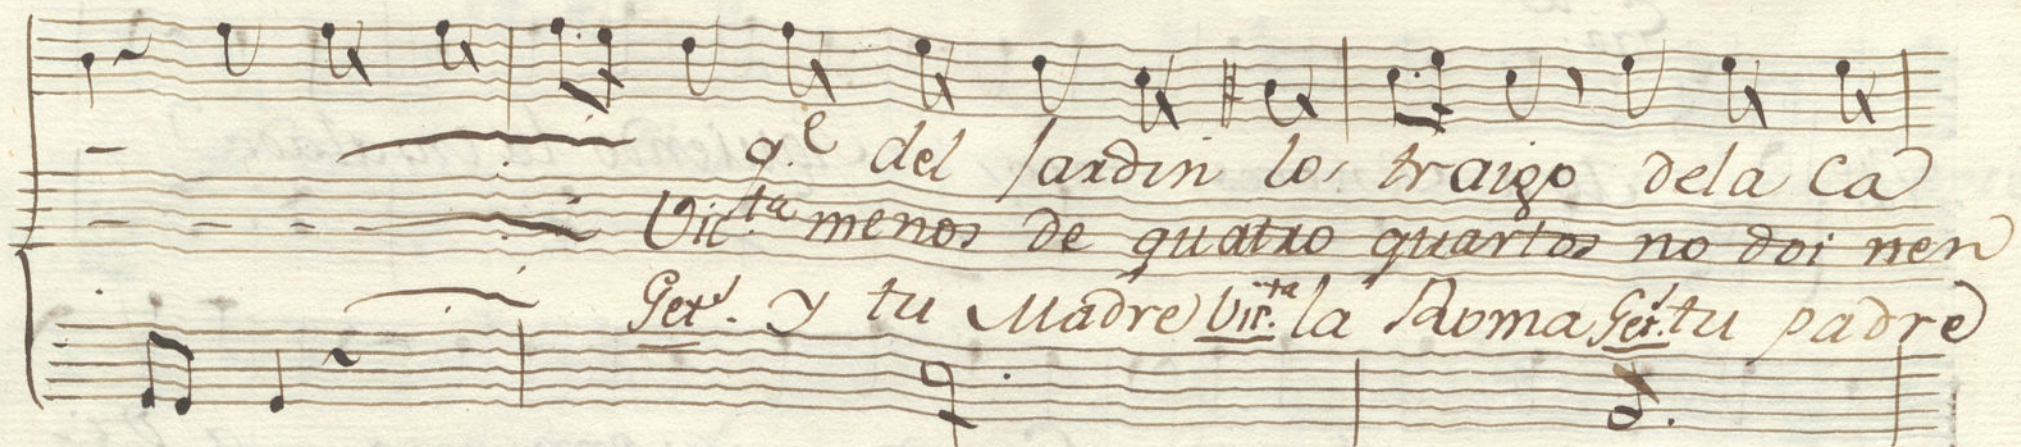 q.e del Jardin los traigo dela Ca
Vic.ta menos de quatro quartos no doi nen
Ger.l y tu Madre Vic.ta la Roma Ger.l tu padre